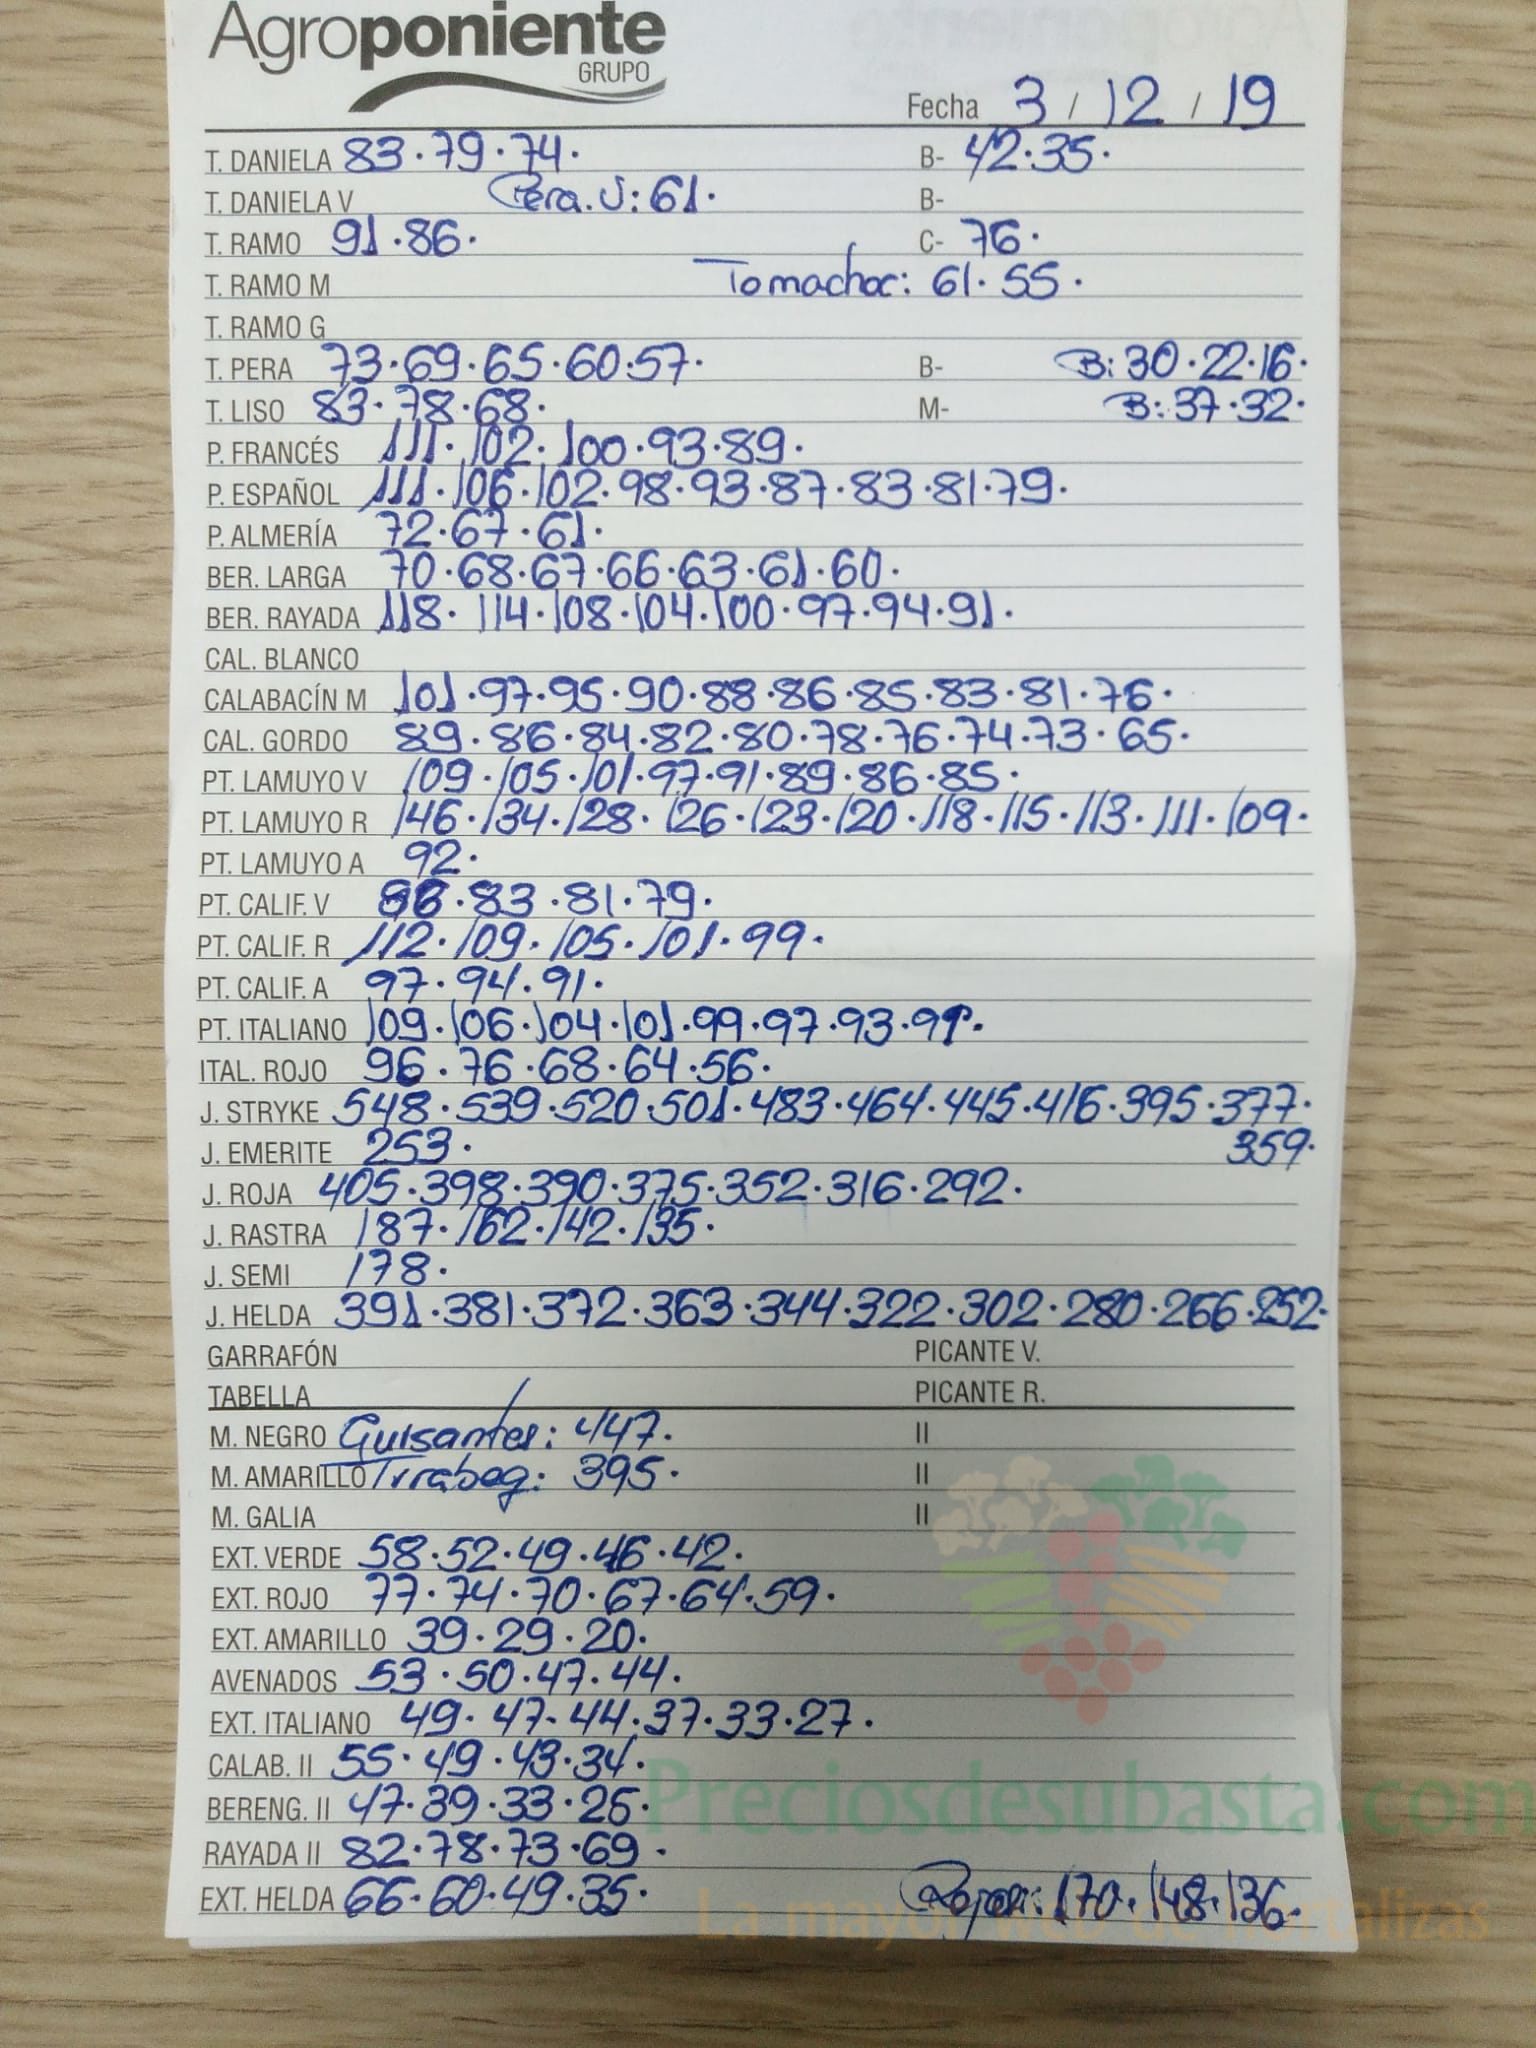 Agroponiente
GRUPO
Fecha 3 / 12 / 19
T. DANIELA 83·79·74· B- 42·35·
T. DANIELA V Pera. V: 61· B-
T. RAMO 91·86· C- 76·
T. RAMO M Tomachoc: 61·55·
T. RAMO G
T. PERA 73·69·65·60·57· B- B: 30·22·16·
T. LISO 83·78·68· M- B: 37·32·
P. FRANCÉS 111·102·100·93·89·
P. ESPAÑOL 111·106·102·98·93·87·83·81·79·
P. ALMERÍA 72·67·61·
BER. LARGA 70·68·67·66·63·61·60·
BER. RAYADA 118·114·108·104·100·97·94·91·
CAL. BLANCO
CALABACÍN M 101·97·95·90·88·86·85·83·81·76·
CAL. GORDO 89·86·84·82·80·78·76·74·73·65·
PT. LAMUYO V 109·105·101·97·91·89·86·85·
PT. LAMUYO R 146·134·128·126·123·120·118·115·113·111·109·
PT. LAMUYO A 92·
PT. CALIF. V 86·83·81·79·
PT. CALIF. R 112·109·105·101·99·
PT. CALIF. A 97·94·91·
PT. ITALIANO 109·106·104·101·99·97·93·91·
ITAL. ROJO 96·76·68·64·56·
J. STRYKE 548·539·520·501·483·464·445·416·395·377·
J. EMERITE 253· 359·
J. ROJA 405·398·390·375·352·316·292·
J. RASTRA 187·162·142·135·
J. SEMI 178·
J. HELDA 391·381·372·363·344·322·302·280·266·252·
GARRAFÓN PICANTE V.
TABELLA PICANTE R.
M. NEGRO Guisantes: 447· II
M. AMARILLO Tirabeq: 395· II
M. GALIA II
EXT. VERDE 58·52·49·46·42·
EXT. ROJO 77·74·70·67·64·59·
EXT. AMARILLO 39·29·20·
AVENADOS 53·50·47·44·
EXT. ITALIANO 49·47·44·37·33·27·
CALAB. II 55·49·43·34·
BERENG. II 47·39·33·25·
Preciosdesubasta.com
RAYADA II 82·78·73·69·
EXT. HELDA 66·60·49·35· 170·148·136·
La mayor web de hortalizas